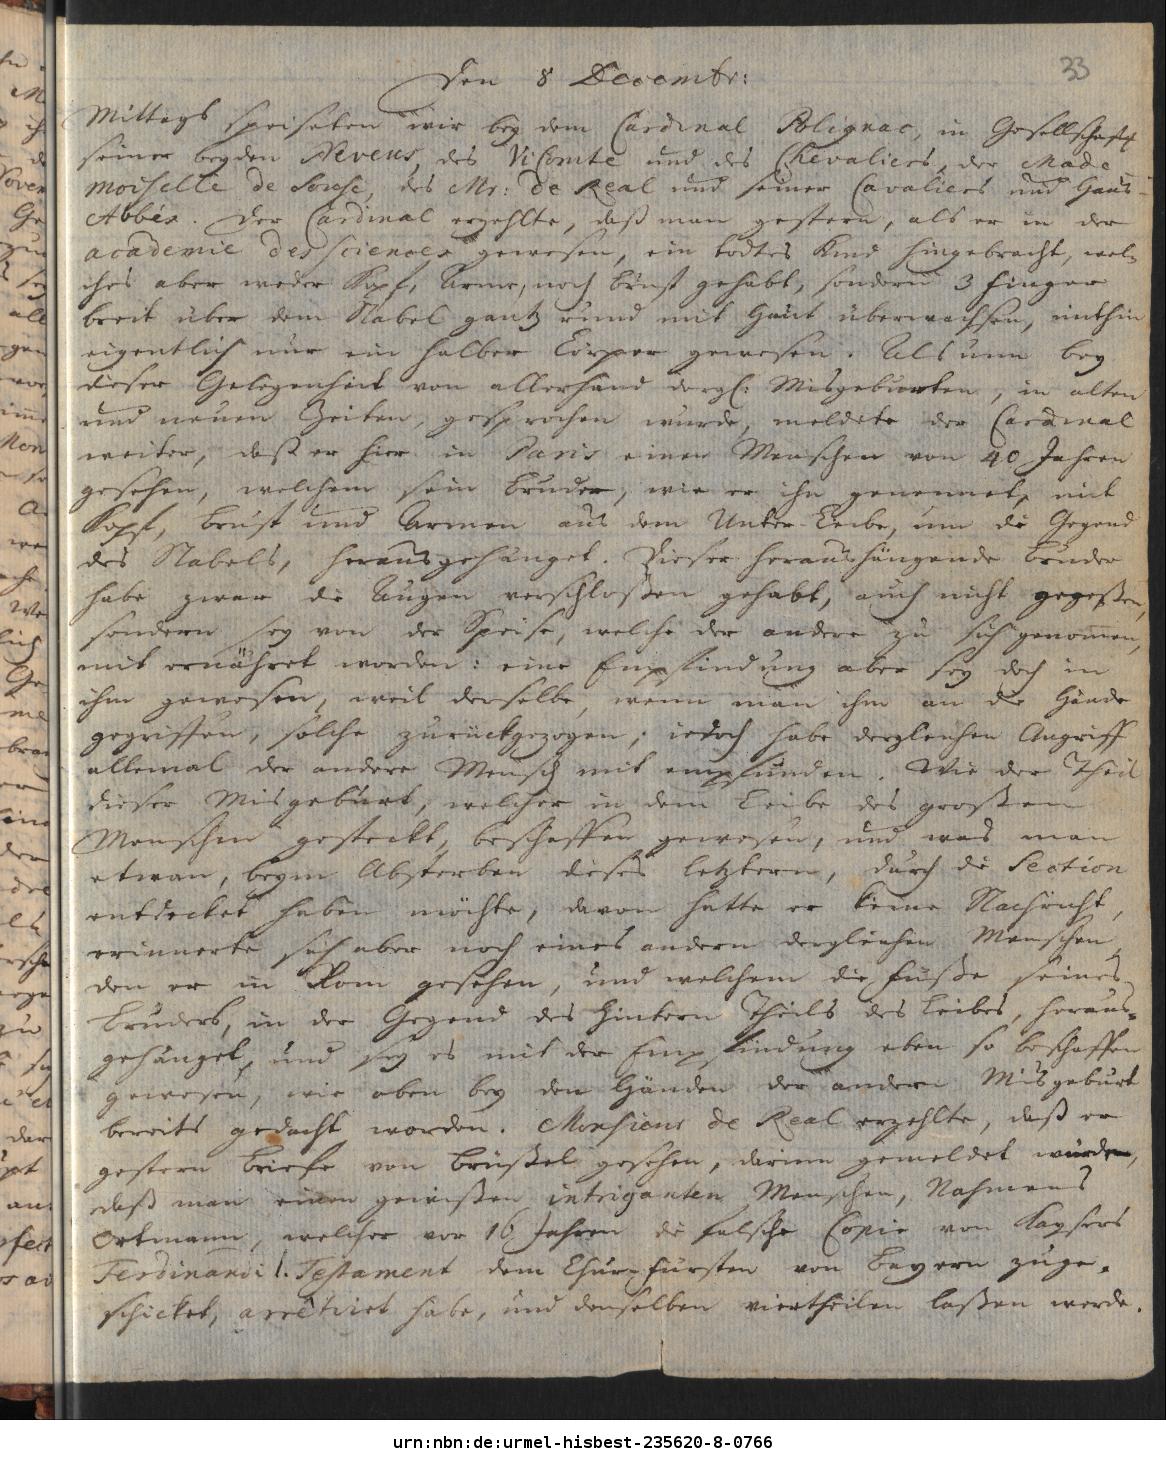 33
Den 8 Decembr:
Mittags speiseten wir bey dem Cardinal Polignac, in Gesellschafft
seiner beyden Neveus, des ViComte und des Chevaliers, der Made
moiselle de Sousè, des Mr: de Real und seiner Cavaliers und Haus-
Abbés. Der Cardinal erzehlte, daß man gestern, als er in der
academie des sciences gewesen, ein todtes Kind hingebracht, wel-
ches aber weder Kopf, Arme, noch Brust gehabt, sondern 3 Finger
breit über dem Nabel gantz rund mit Haut überwachsen, mithin
eigentlich nur ein halber Cörper gewesen. Als nun bey
dieser Gelegenheit von allerhand dergl: Misgeburten, in alten
und neuen Zeiten, gesprochen wurde, meldete der Cardinal
weiter, daß er hier in Paris einen Menschen von 40 Jahren
gesehen, welchem sein Bruder, wie er ihn genennet, mit
Kopf, Brust und Armen aus dem Unter-Leibe, um die Gegend
des Nabels, herausgehänget. Dieser heraushängende Bruder
habe zwar die Augen verschloßen gehabt, auch nicht gegeßen,
sondern sey von der Speise, welche der andere zu sich genommen,
mit ernähret worden: eine Empfindung aber sey doch in
ihm gewesen, weil derselbe, wenn man ihm an die Hände
gegriffen, solche zurückgezogen; iedoch habe dergleichen Angriff
allemal der andere Mensch mit empfunden. Wie der Theil
dieser Misgeburt, welcher in dem Leibe des großen
Menschen gesteckt, beschaffen gewesen, und was man
etwan, beym Absterben dieses letztern, durch die Section
entdecket haben möchte, davon hatte er keine Nachricht,
erinnerte sich aber noch eines andern dergleichen Menschen,
den er in Rom gesehen, und welchem die Füße seines
Bruders, in der Gegend des hintern Theils des Leibes, heraus-
gehänget, und sey es mit der Empfindung eben so beschaffen
gewesen, wie oben bey den Händen der andern Misgeburt
bereits gedacht worden. Monsieur de Real erzehlte, daß er
gestern Briefe von Brüßel gesehen, darinn gemeldet würde,
daß man einen gewißen intriganten Menschen, Nahmens
Ortmann, welcher vor 16 Jahren die falsche Copie von Kaysers
Ferdinandi I. Testament dem Churfürsten von Bayern zuge-
schicket, arrêtiret habe, und denselben viertheilen laßen werde.
urn:nbn:de:urmel-hisbest-235620-8-0766